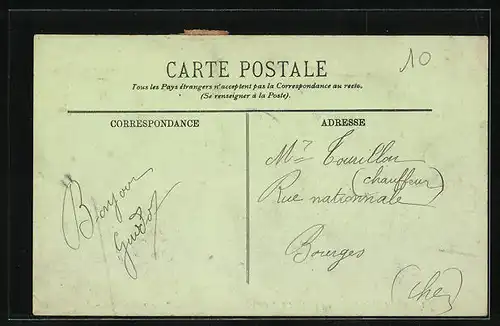 10
CARTE POSTALE
Tous les Pays étrangers n'acceptent pas la Correspondance au recto.
(Se renseigner à la Poste).
CORRESPONDANCE
ADRESSE
Bonjour
Mr Tourillon
(chauffeur)
Rue nationnale
Bourges
(Cher)